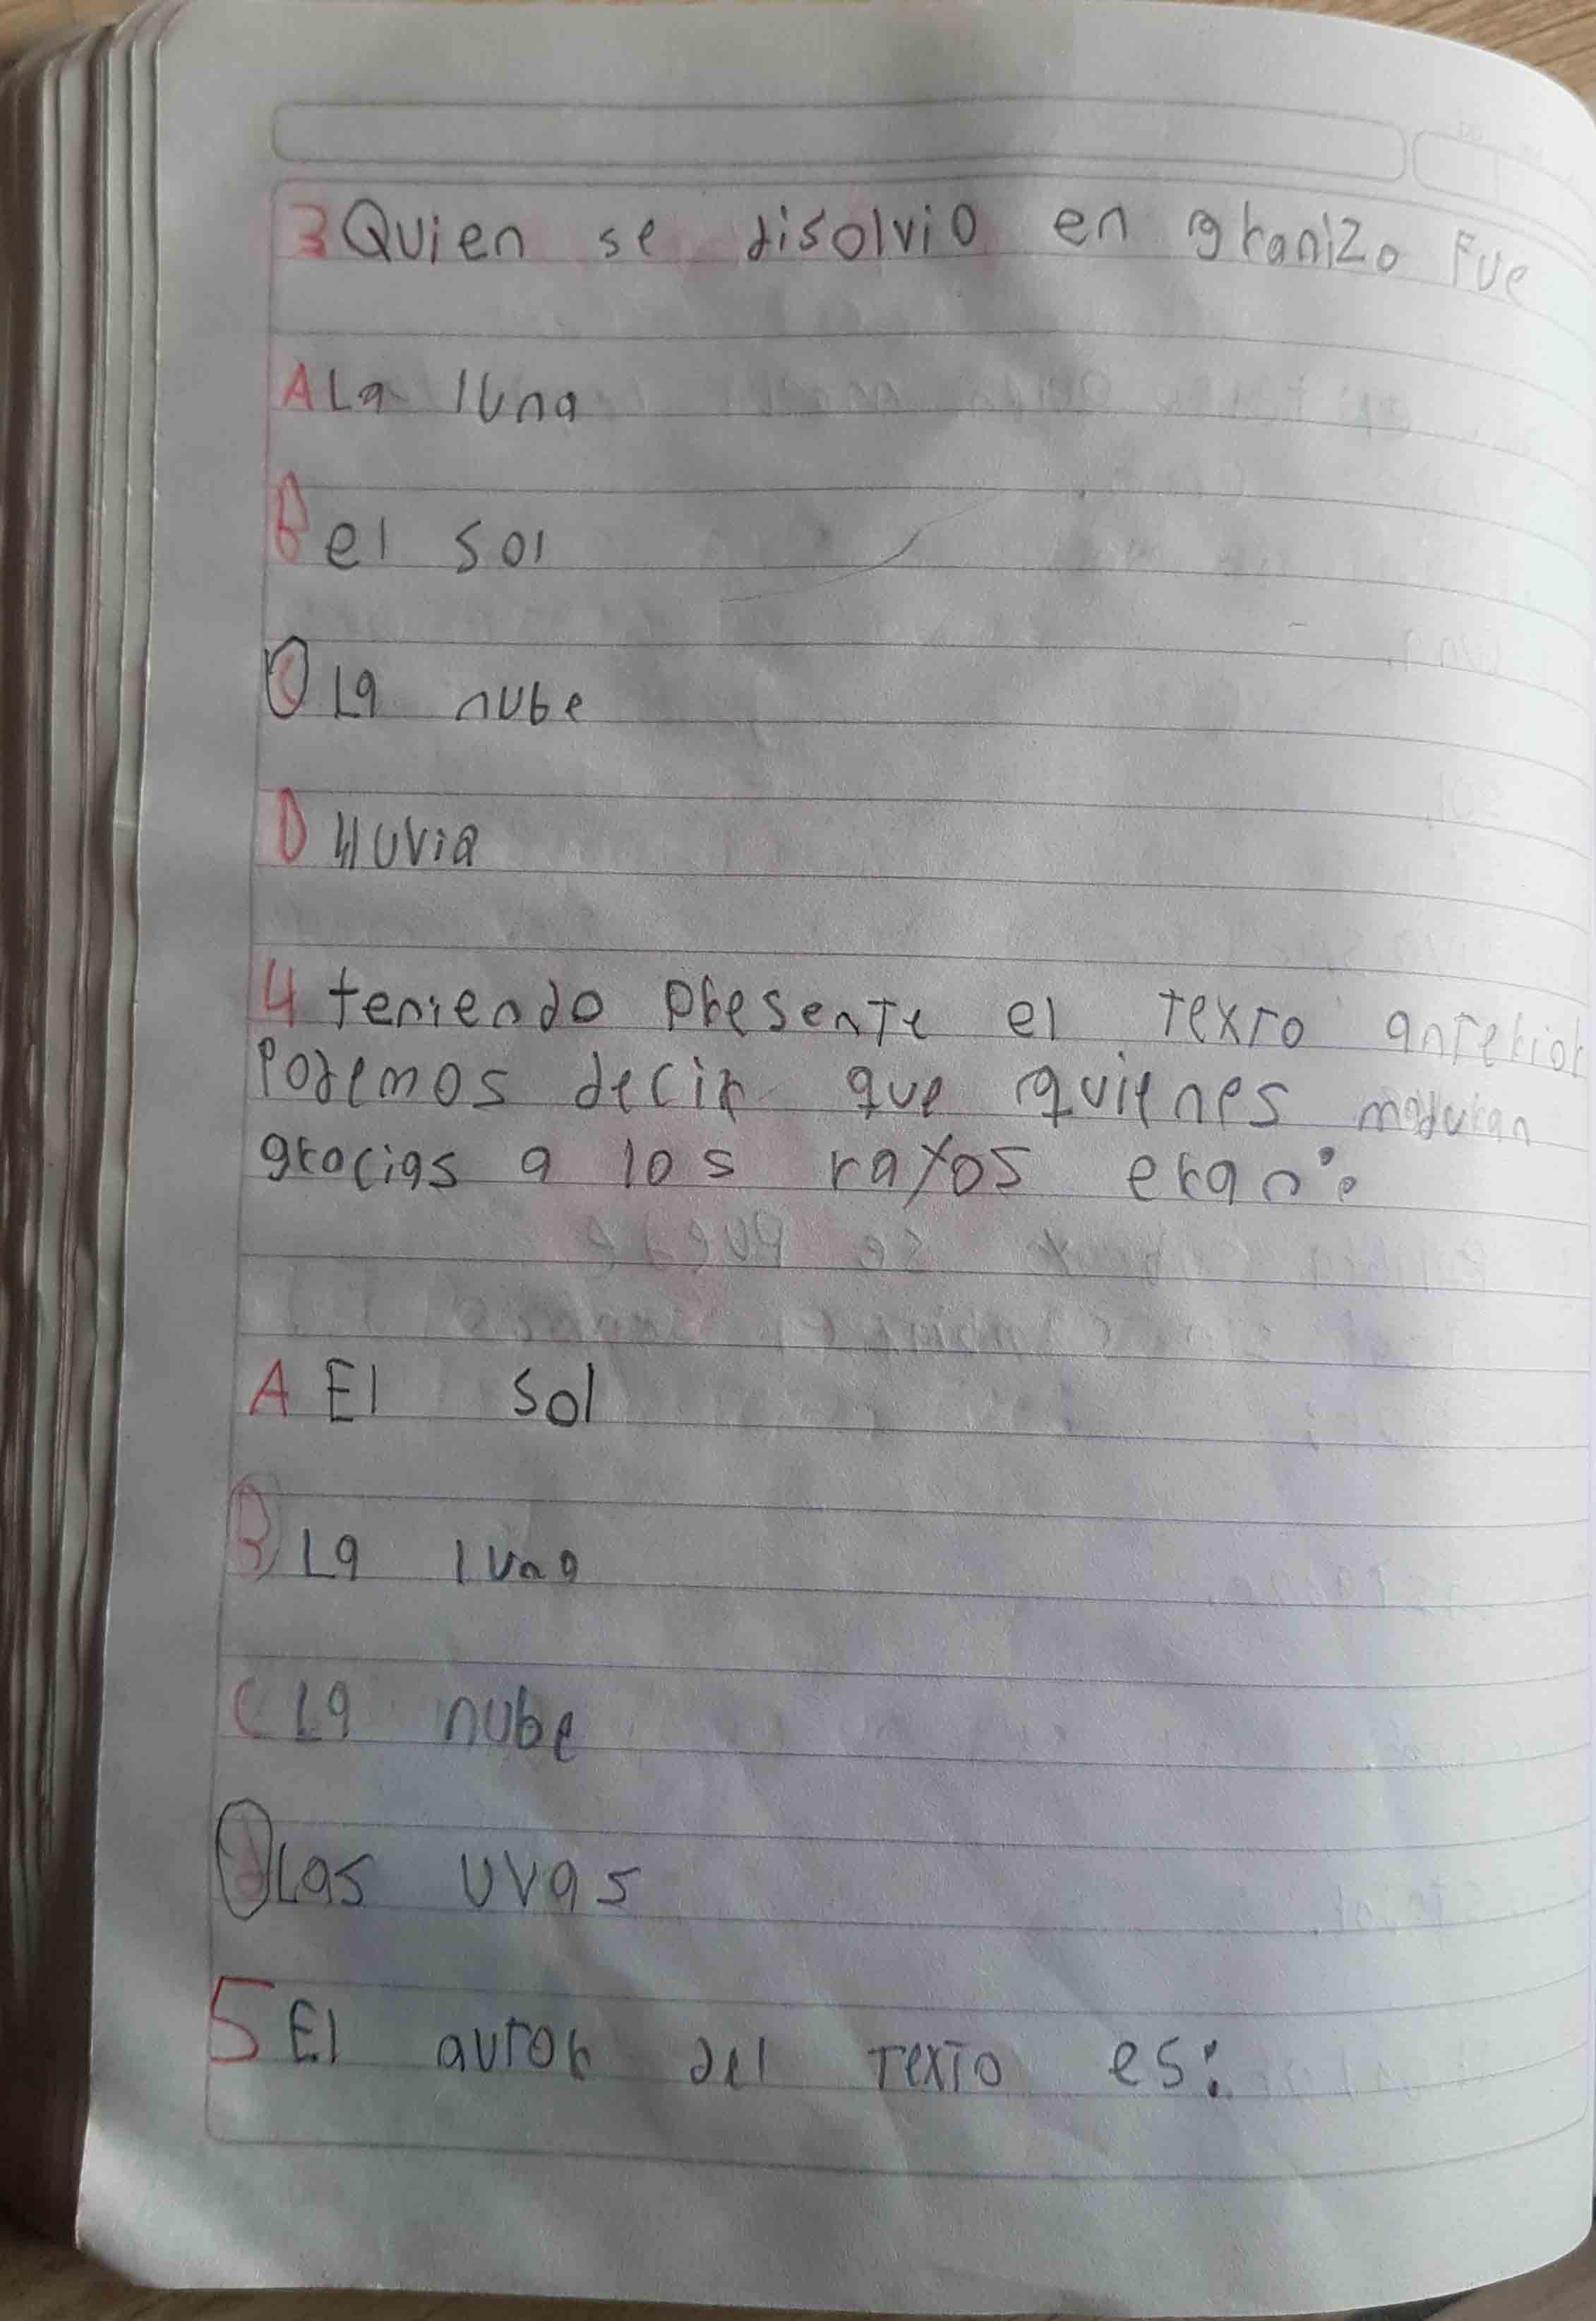 3 Quien se disolvio en granizo Fue
A La luna
B el sol
C La nube
D lluvia
4 teniendo presente el texto anterior
Podemos decir que quienes maduran
gracias a los rayos eran:
A El sol
B La luna
C La nube
d Las uvas
5 El autor del texto es: